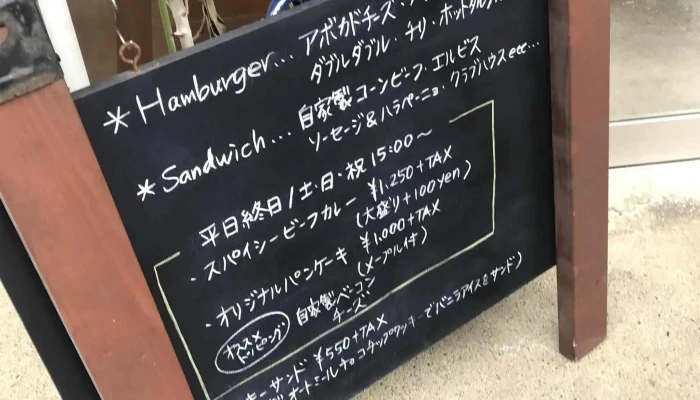 *Hamburger... アボカドチーズ・
ダブルダブル・チリ・ホットタルタル
*Sandwich... 自家製コーンビーフ・エルビス
ソーセージ&ハラペーニョ・クラブハウスetc...
平日終日/土・日・祝 15:00～
・スパイシービーフカレー ¥1,250+TAX
(大盛り+100yen)
・オリジナルパンケーキ ¥1,000+TAX
(メープル付)
オススメ
トッピング
自家製ベーコン
チーズ
キーサンド ¥550+TAX
オートミールチョコチップクッキーでバニラアイスをサンド)